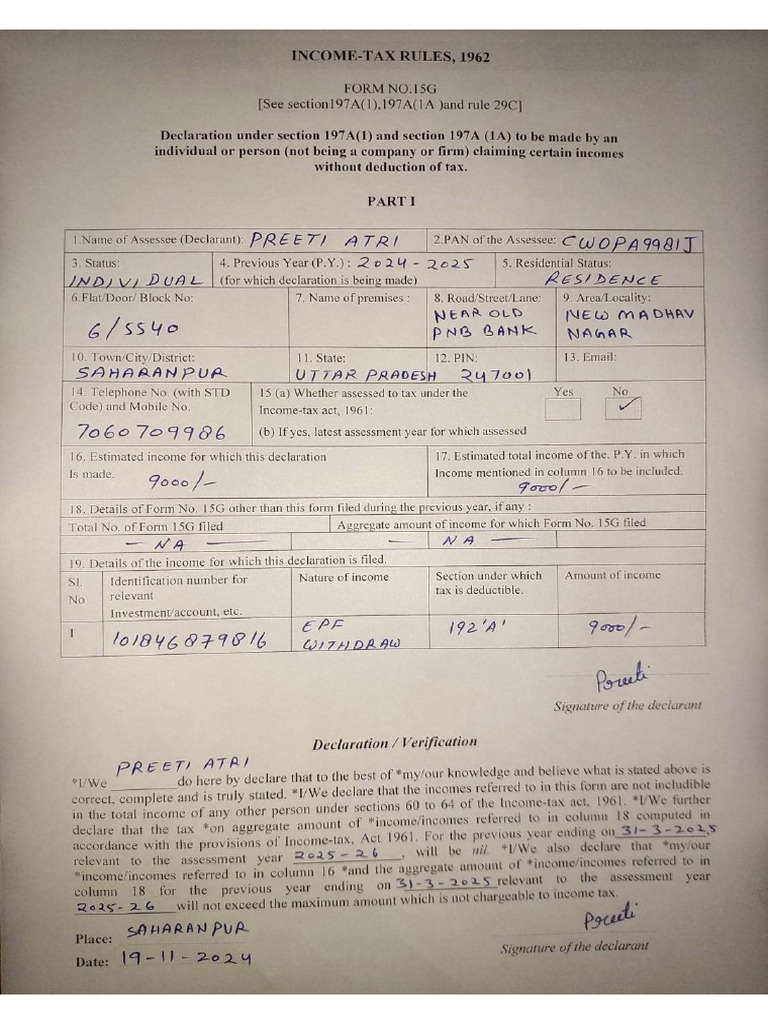 INCOME-TAX RULES, 1962
FORM NO.15G
[See section197A(1),197A(1A )and rule 29C]
Declaration under section 197A(1) and section 197A (1A) to be made by an
individual or person (not being a company or firm) claiming certain incomes
without deduction of tax.
PART I
1.Name of Assessee (Declarant): PREETI ATRI 2.PAN of the Assessee: CWOPA9981J
3. Status: 4. Previous Year (P.Y.) : 2024 - 2025 5. Residential Status:
INDIVIDUAL (for which declaration is being made) RESIDENCE
6.Flat/Door/ Block No: 7. Name of premises : 8. Road/Street/Lane: 9. Area/Locality:
6/5540 NEAR OLD NEW MADHAV
PNB BANK NAGAR
10. Town/City/District: 11. State: 12. PIN: 13. Email:
SAHARANPUR UTTAR PRADESH 247001
14. Telephone No. (with STD 15 (a) Whether assessed to tax under the Yes No
Code) and Mobile No. Income-tax act, 1961: ✓
7060709986 (b) If yes, latest assessment year for which assessed
16. Estimated income for which this declaration 17. Estimated total income of the. P.Y. in which
Is made. 9000/- Income mentioned in column 16 to be included.
9000/-
18. Details of Form No. 15G other than this form filed during the previous year, if any :
Total No. of Form 15G filed Aggregate amount of income for which Form No. 15G filed
— NA — — NA —
19. Details of the income for which this declaration is filed.
Sl. Identification number for Nature of income Section under which Amount of income
No relevant tax is deductible.
Investment/account, etc.
1 101846879816 EPF 192'A' 9000/-
WITHDRAW
Preeti
Signature of the declarant
Declaration / Verification
PREETI ATRI
*I/We ________ do here by declare that to the best of *my/our knowledge and believe what is stated above is
correct, complete and is truly stated. *I/We declare that the incomes referred to in this form are not includible
in the total income of any other person under sections 60 to 64 of the Income-tax act, 1961. *I/We further
declare that the tax *on aggregate amount of *income/incomes referred to in column 18 computed in
accordance with the provisions of Income-tax, Act 1961. For the previous year ending on 31-3-2025
relevant to the assessment year 2025-26, will be nil. *I/We also declare that *my/our
*income/incomes referred to in column 16 *and the aggregate amount of *income/incomes referred to in
column 18 for the previous year ending on 31-3-2025 relevant to the assessment year
2025-26 will not exceed the maximum amount which is not chargeable to income tax.
Place: SAHARANPUR
Preeti
Date: 19-11-2024
Signature of the declarant